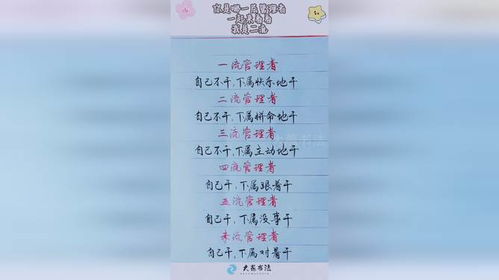 你是哪一层管理者
一起来看看
我是二流
一流管理者
自己不干,下属快乐地干
二流管理者
自己不干,下属拼命地干
三流管理者
自己不干,下属主动地干
四流管理者
自己干,下属跟着干
五流管理者
自己干,下属没事干
末流管理者
自己干,下属对着干